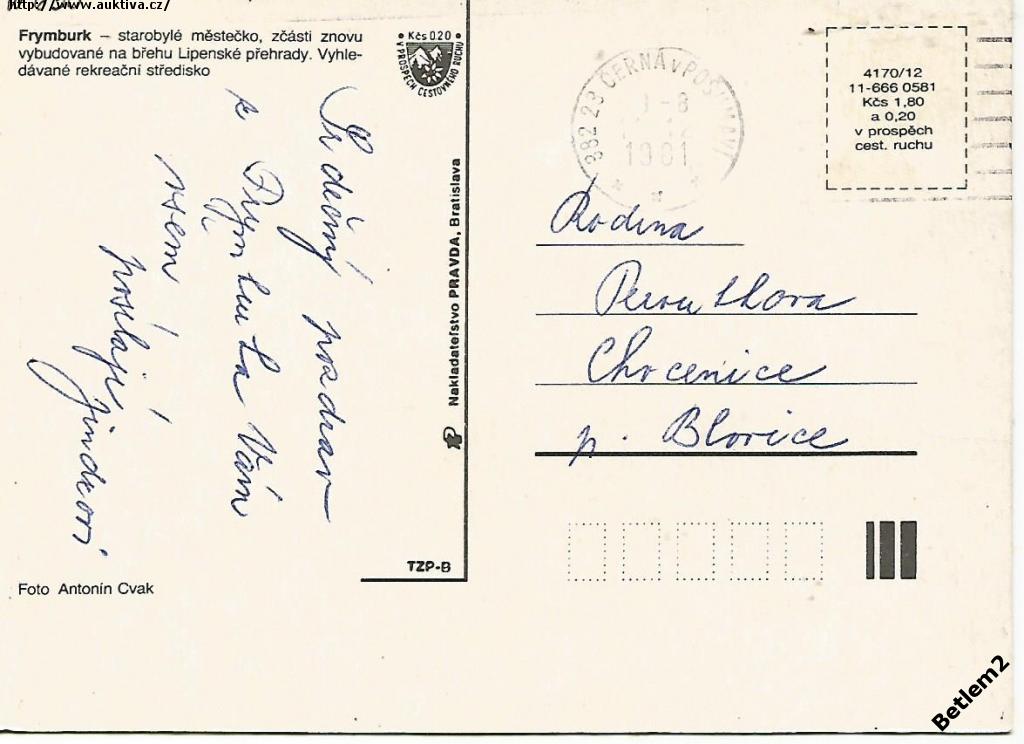 http://www.auktiva.cz/
Frymburk – starobylé městečko, zčásti znovu
vybudované na břehu Lipenské přehrady. Vyhle-
dávané rekreační středisko
Kčs 0.20
V PROSPĚCH CESTOVNÉHO RUCHU
Srdečný pozdrav
z Frymburka Vám
všem
posílají
Jindrovi
Foto Antonín Cvak
Nakladateľstvo PRAVDA, Bratislava
TZP-B
382 23 ČERNÁ v POŠUMAVÍ
1981
4170/12
11-666 0581
Kčs 1,80
a 0,20
v prospěch
cest. ruchu
Rodina
Chocenice
p. Blovice
Betlem2